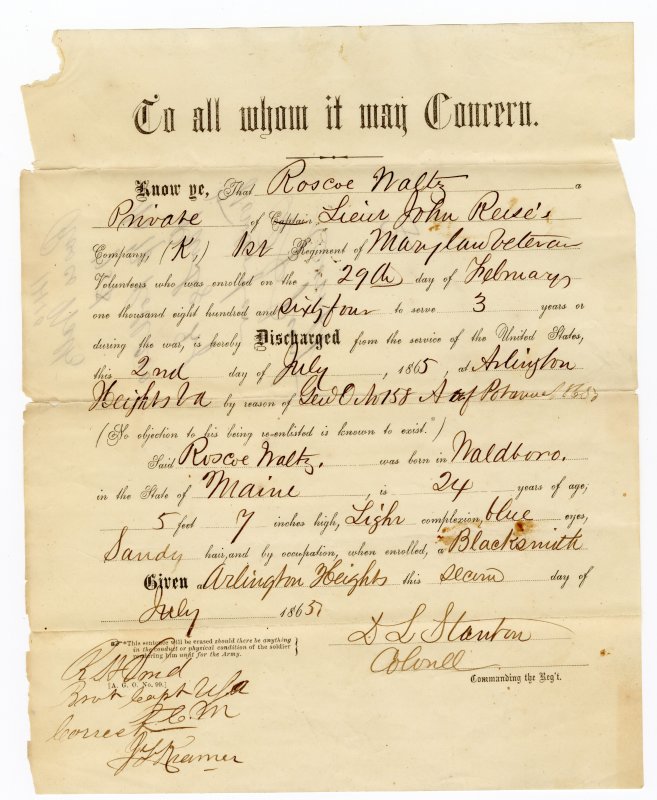 To all whom it may Concern.
Know ye, That Roscoe Waltz a
Private of Captain, Lieut John Reese's
Company, (K,) 1st Regiment of Maryland Veteran
Volunteers who was enrolled on the 29th day of February
one thousand eight hundred and sixty four to serve 3 years or
during the war, is hereby Discharged from the service of the United States,
this 2nd day of July, 1865, at Arlington
Heights Va by reason of Genl O No 158 A of Potomac 1865
(No objection to his being re-enlisted is known to exist.*)
Said Roscoe Waltz. was born in Waldboro.
in the State of Maine, is 24 years of age,
5 feet 7 inches high, Light complexion, blue eyes,
Sandy hair, and by occupation, when enrolled, a Blacksmith
Given at Arlington Heights this second day of
July 1865
D L Stanton
Colonell
Commanding the Reg't.
*This sentence will be erased should there be anything
in the conduct or physical condition of the soldier
rendering him unfit for the Army.
[A. G. O. No. 99.]
Brvt Capt USA
A. C. M
Correct
Kramer